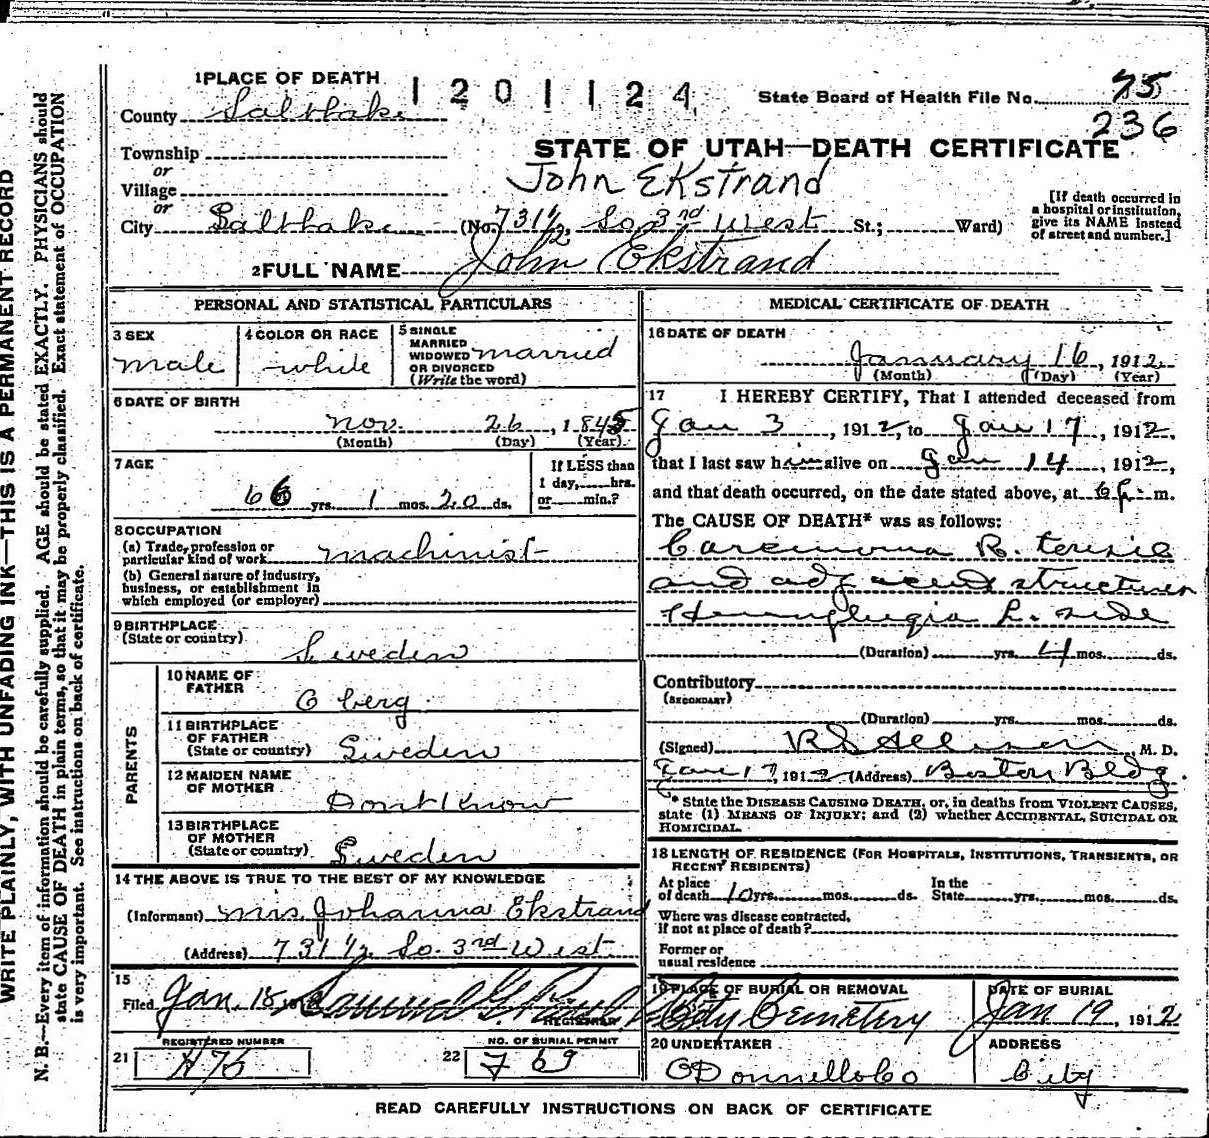 WRITE PLAINLY, WITH UNFADING INK—THIS IS A PERMANENT RECORD
N. B.—Every item of information should be carefully supplied. AGE should be stated EXACTLY. PHYSICIANS should
state CAUSE OF DEATH in plain terms, so that it may be properly classified. Exact statement of OCCUPATION
is very important. See instructions on back of certificate.
1 PLACE OF DEATH
1201124
State Board of Health File No. 75
236
County Salt Lake
STATE OF UTAH—DEATH CERTIFICATE
Township
or
John Ekstrand
Village
or
City Salt Lake (No. 731 1/2, So. 3rd West St.; Ward)
[If death occurred in
a hospital or institution,
give its NAME instead
of street and number.]
2 FULL NAME John Ekstrand
PERSONAL AND STATISTICAL PARTICULARS
3 SEX
male
4 COLOR OR RACE
white
5 SINGLE
MARRIED
WIDOWED
OR DIVORCED
(Write the word)
married
6 DATE OF BIRTH
Nov. 26, 1845
(Month) (Day) (Year)
7 AGE
66 yrs. 1 mos. 20 ds.
If LESS than
1 day, hrs.
or min.?
8 OCCUPATION
(a) Trade, profession or
particular kind of work machinist
(b) General nature of industry,
business, or establishment in
which employed (or employer)
9 BIRTHPLACE
(State or country)
Sweden
PARENTS
10 NAME OF
FATHER
O berg
11 BIRTHPLACE
OF FATHER
(State or country) Sweden
12 MAIDEN NAME
OF MOTHER
Dont Know
13 BIRTHPLACE
OF MOTHER
(State or country) Sweden
14 THE ABOVE IS TRUE TO THE BEST OF MY KNOWLEDGE
(Informant) Mrs. Johanna Ekstrand
(Address) 731 1/2 So. 3rd West
15
Filed Jan. 18 191 Samuel G. Paul
REGISTRAR
REGISTERED NUMBER
21 H75
NO. OF BURIAL PERMIT
22 F 69
MEDICAL CERTIFICATE OF DEATH
16 DATE OF DEATH
January 16, 1912
(Month) (Day) (Year)
17 I HEREBY CERTIFY, That I attended deceased from
Jan 3, 1912, to Jan 17, 1912,
that I last saw him alive on Jan 14, 1912,
and that death occurred, on the date stated above, at 6 P. m.
The CAUSE OF DEATH* was as follows:
Carcinoma R.
and adjacent structures
Hemiplegia L. side
(Duration) yrs. 4 mos. ds.
Contributory
(SECONDARY)
(Duration) yrs. mos. ds.
(Signed) M. D.
Jan 17, 1912 (Address) Boston Bldg.
* State the DISEASE CAUSING DEATH, or, in deaths from VIOLENT CAUSES,
state (1) MEANS OF INJURY; and (2) whether ACCIDENTAL, SUICIDAL OR
HOMICIDAL.
18 LENGTH OF RESIDENCE (FOR HOSPITALS, INSTITUTIONS, TRANSIENTS, OR
RECENT RESIDENTS)
At place
of death 10 yrs. mos. ds.
In the
State yrs. mos. ds.
Where was disease contracted,
if not at place of death?
Former or
usual residence
19 PLACE OF BURIAL OR REMOVAL
City Cemetery
DATE OF BURIAL
Jan 19, 1912
20 UNDERTAKER
O Donnell & Co
ADDRESS
City
READ CAREFULLY INSTRUCTIONS ON BACK OF CERTIFICATE